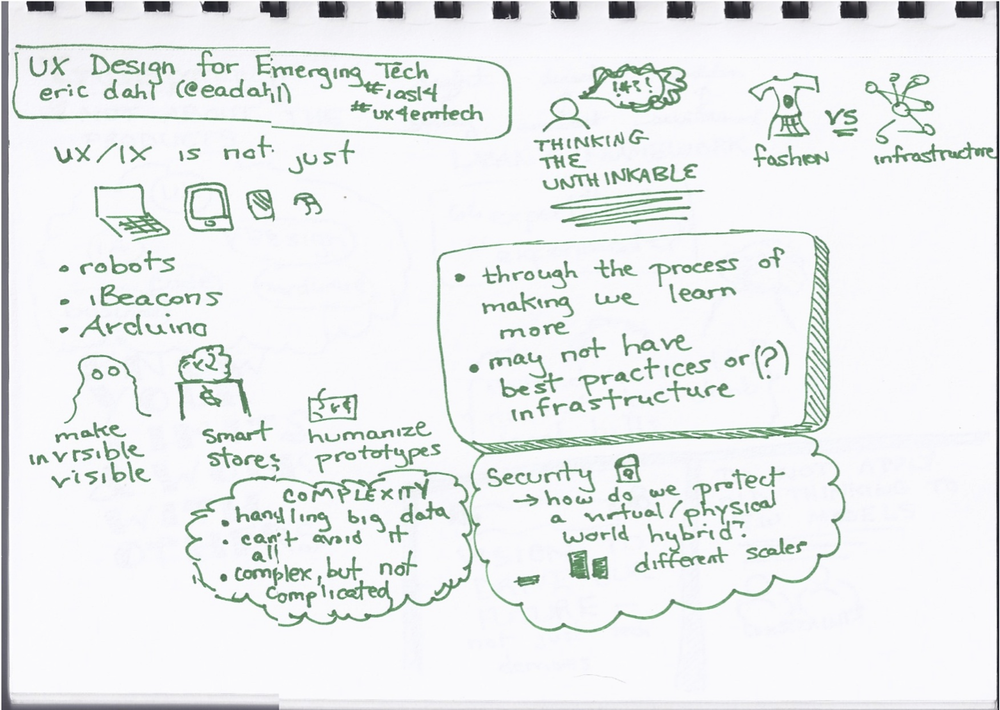 UX Design for Emerging Tech
eric dahl (@eadahl)
#ias14
#ux4emtech
UX/IX is not just
• robots
• iBeacons
• Arduino
make
invisible
visible
smart
stores
humanize
prototypes
!#?!
THINKING
THE
UNTHINKABLE
fashion
vs
infrastructure
• through the process of
making we learn
more
• may not have
best practices or (?)
infrastructure
COMPLEXITY
• handling big data
• can't avoid it
all
• complex, but not
complicated
Security
→ how do we protect
a virtual/physical
world hybrid?
different scales